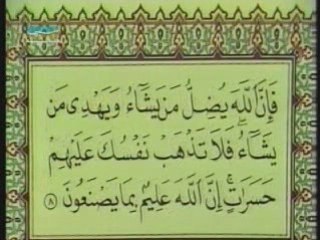 فَإِنَّ ٱللَّهَ يُضِلُّ مَن يَشَآءُ وَيَهۡدِى مَن
يَشَآءُۖ فَلَا تَذۡهَبۡ نَفۡسُكَ عَلَيۡهِمۡ
حَسَرَٰتٍۚ إِنَّ ٱللَّهَ عَلِيمُۢ بِمَا يَصۡنَعُونَ ٨